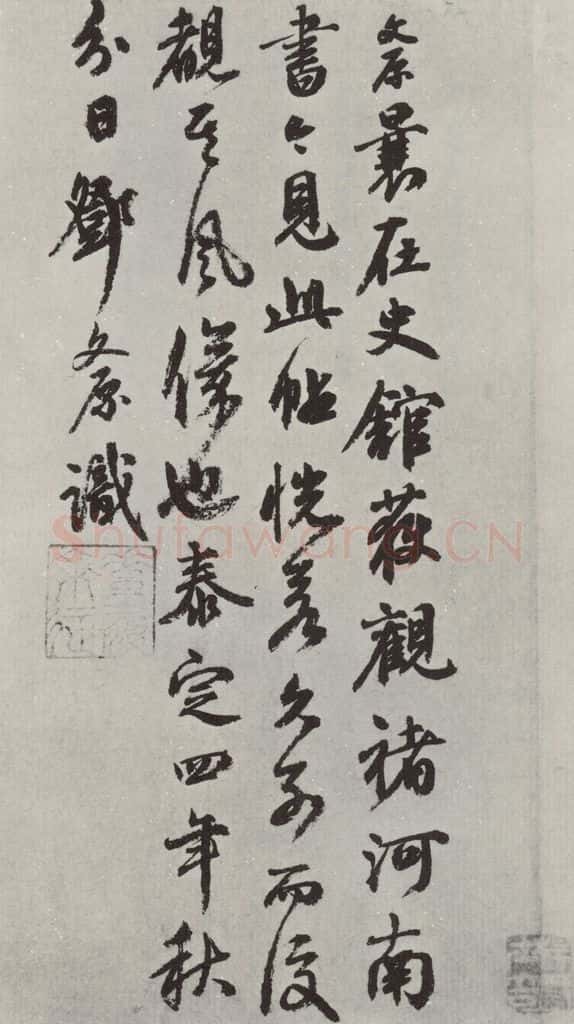 文原曩在史館获觀褚河南
書今見此帖恍若久別而復
覩其風儀也泰定四年秋
分日鄧文原識
Shutawang.CN